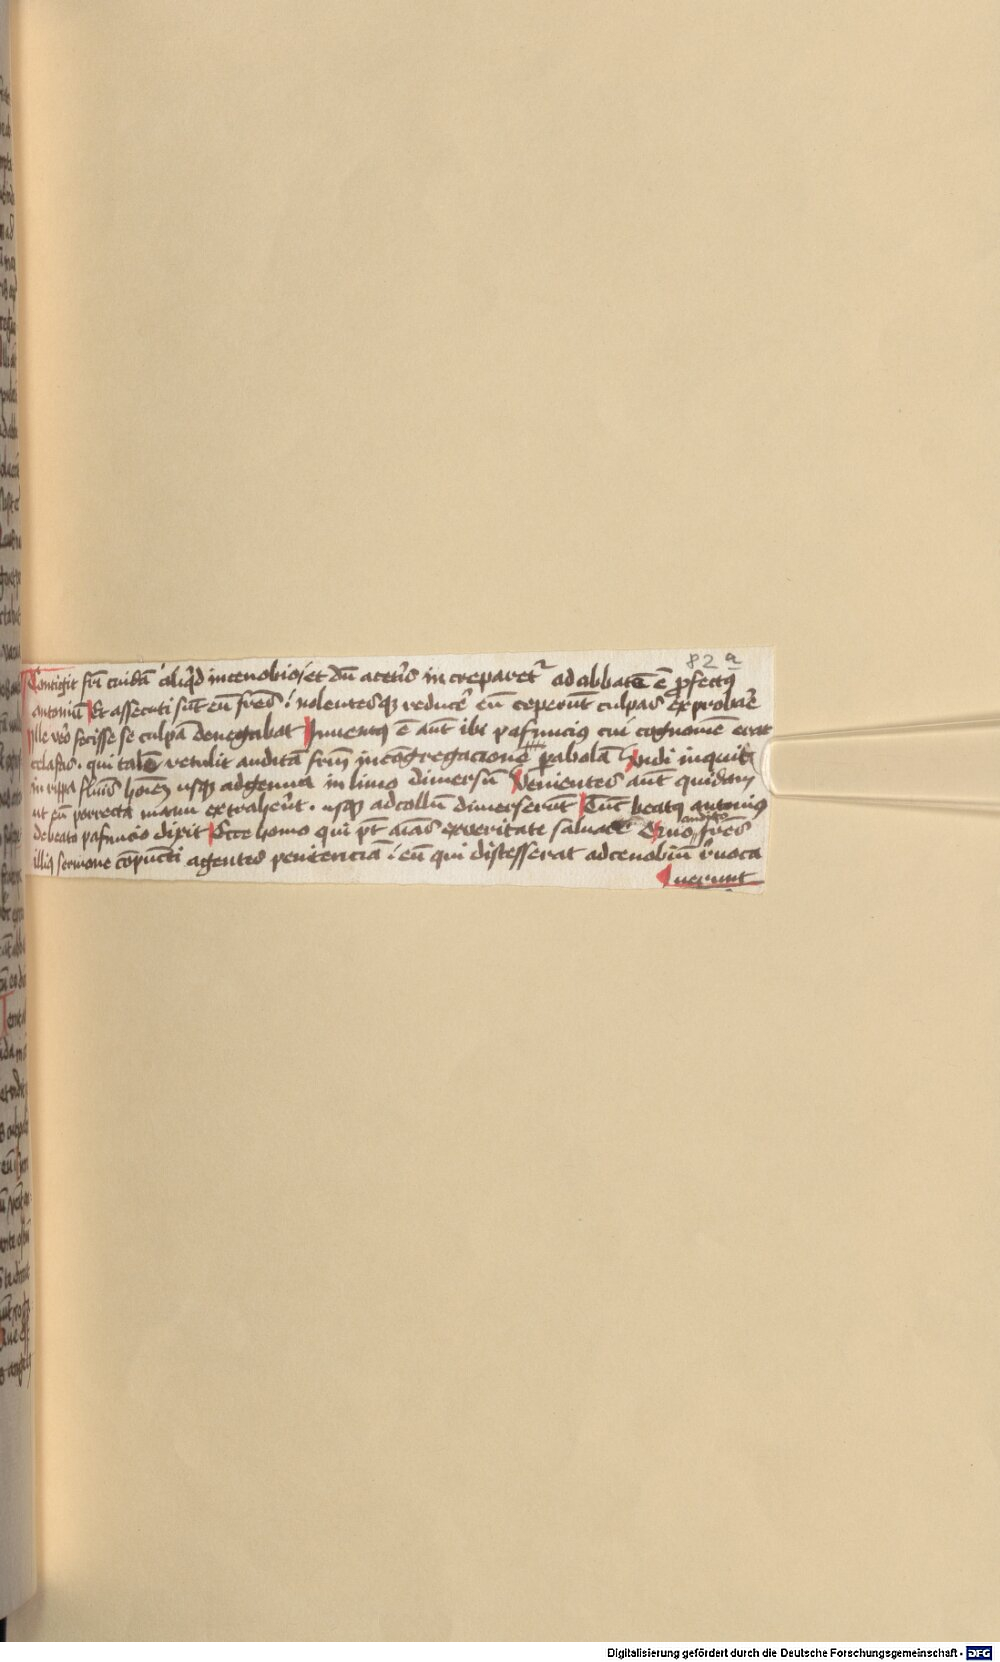 82 a
Contigit fr̄i cuidā aliq̄d in cenobio / et dū a cet̄is increparet᷑ ad abbatē ē ꝓfectꝰ
antoniū Et assecuti sūt eū fr̄es · nolentesqꝫ reduc̄e eū ceperūt culpas exprobrar̄e
Ille v̄o fecisse se culpā denegabat Inuentꝰ ē aūt ibi pafuncius cui cognomē erat
cefafas · qui talē retulit auditā fr̄m in cōgregacione ꝑabolā Uidi inquit
in rippa fluīs hoīeꝫ usqꝫ ad genua in limo dimersū Venientes aūt quidam
ut eū porrecta manu extraher̄ēt · usqꝫ ad collū dimerserūt Tūc beatꝰ antoniꝰ
de beato pafuncio dixit Ecce homo qui pt̄ aīas ex veritate saluare Quo audito fr̄es
illiꝰ sermone cōpūcti agentes penitenciā · eū qui discesserat ad cenobiū r̄uoca
uerunt
Digitalisierung gefördert durch die Deutsche Forschungsgemeinschaft - DFG